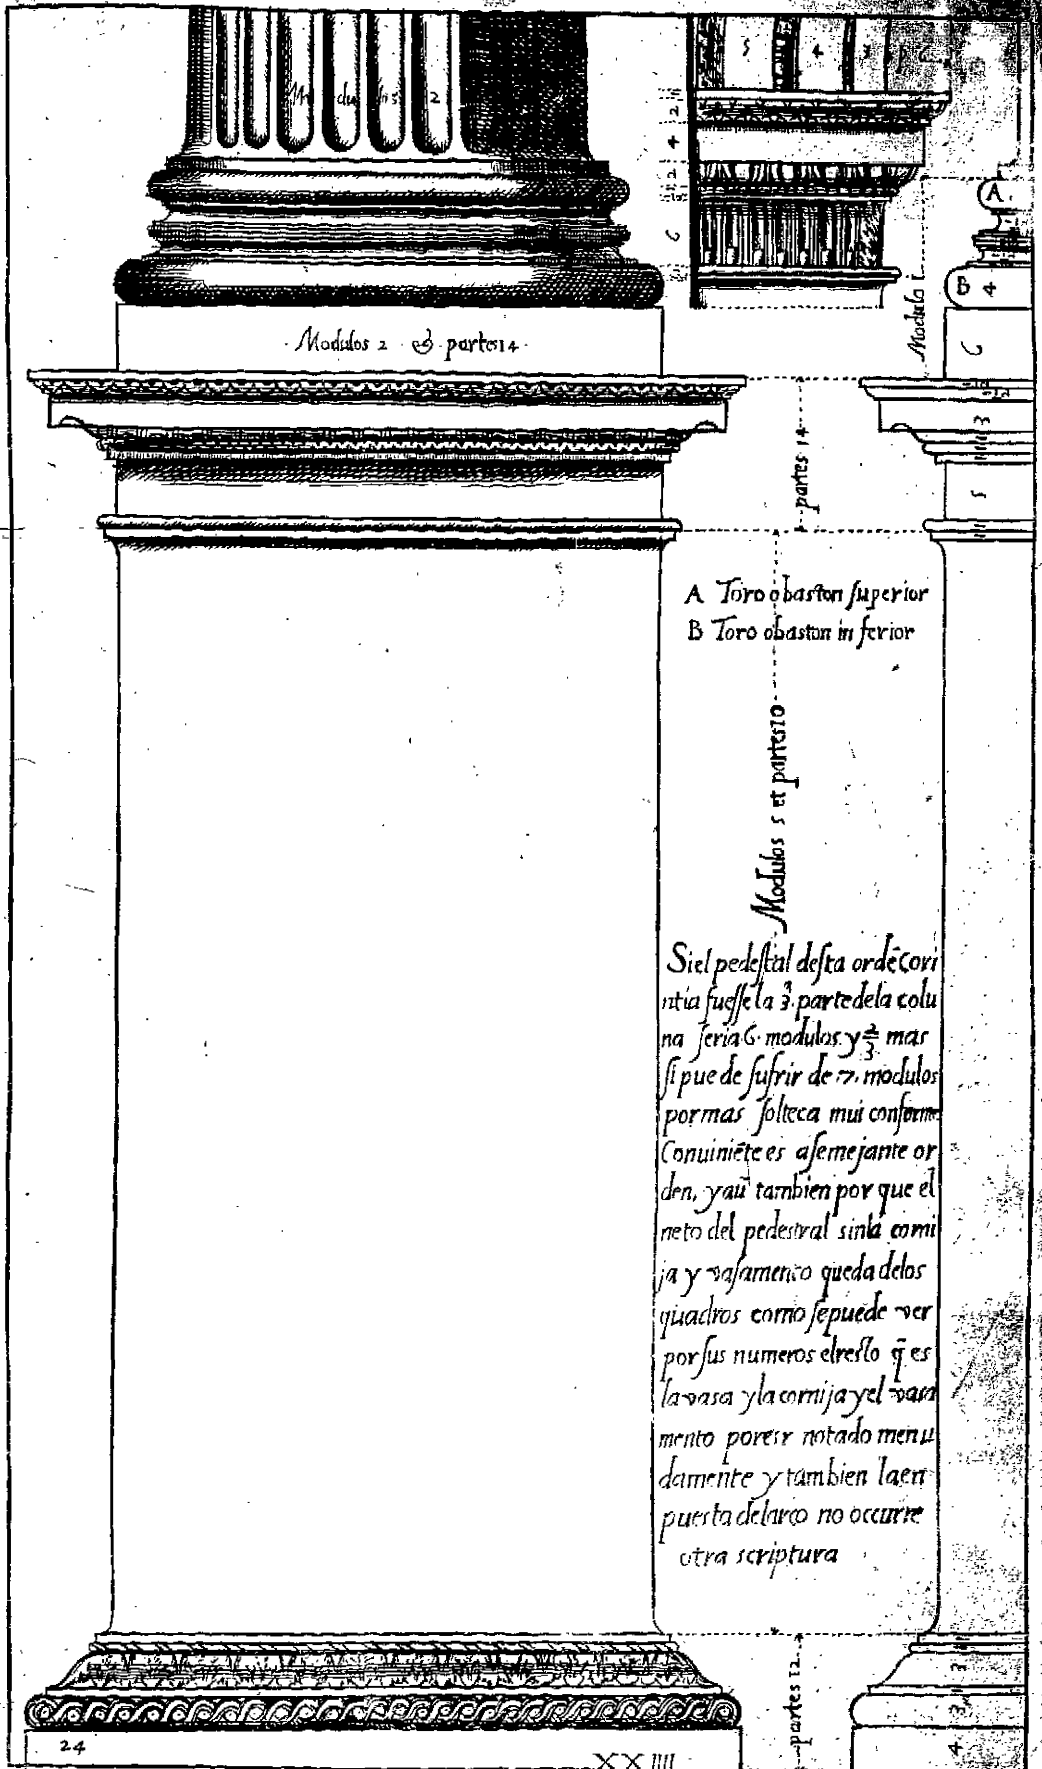 Modulos 2
5 4 3
2
4
2
6
A
B 4
6
Modulo i
Modulos 2 & partes 14
3
5
partes 14
A Toro o baston ſuperior
B Toro o baston in ferior
Modulos 5 et partes 10
Si el pedeſtal deſta ordē Cori
ntia fueſſe la 3ª. parte dela colu
na ſeria 6 modulos y 2/3 mas
ſi pue de ſufrir de .7. modulos
por mas ſolteca mui conforme
Conuiniēte es a ſemejante or
den, y aū tambien por que el
neto del pedestral sin la corni
ja y vaſamento queda de los
quadros como ſe puede ver
por ſus numeros el reſto q̄ es
la vasa y la cornija y el vasa
mento por estr notado menu
damente y tambien la en
puesta del arco no occurre
otra scriptura
partes 12
3
3
4
24
XXIIII